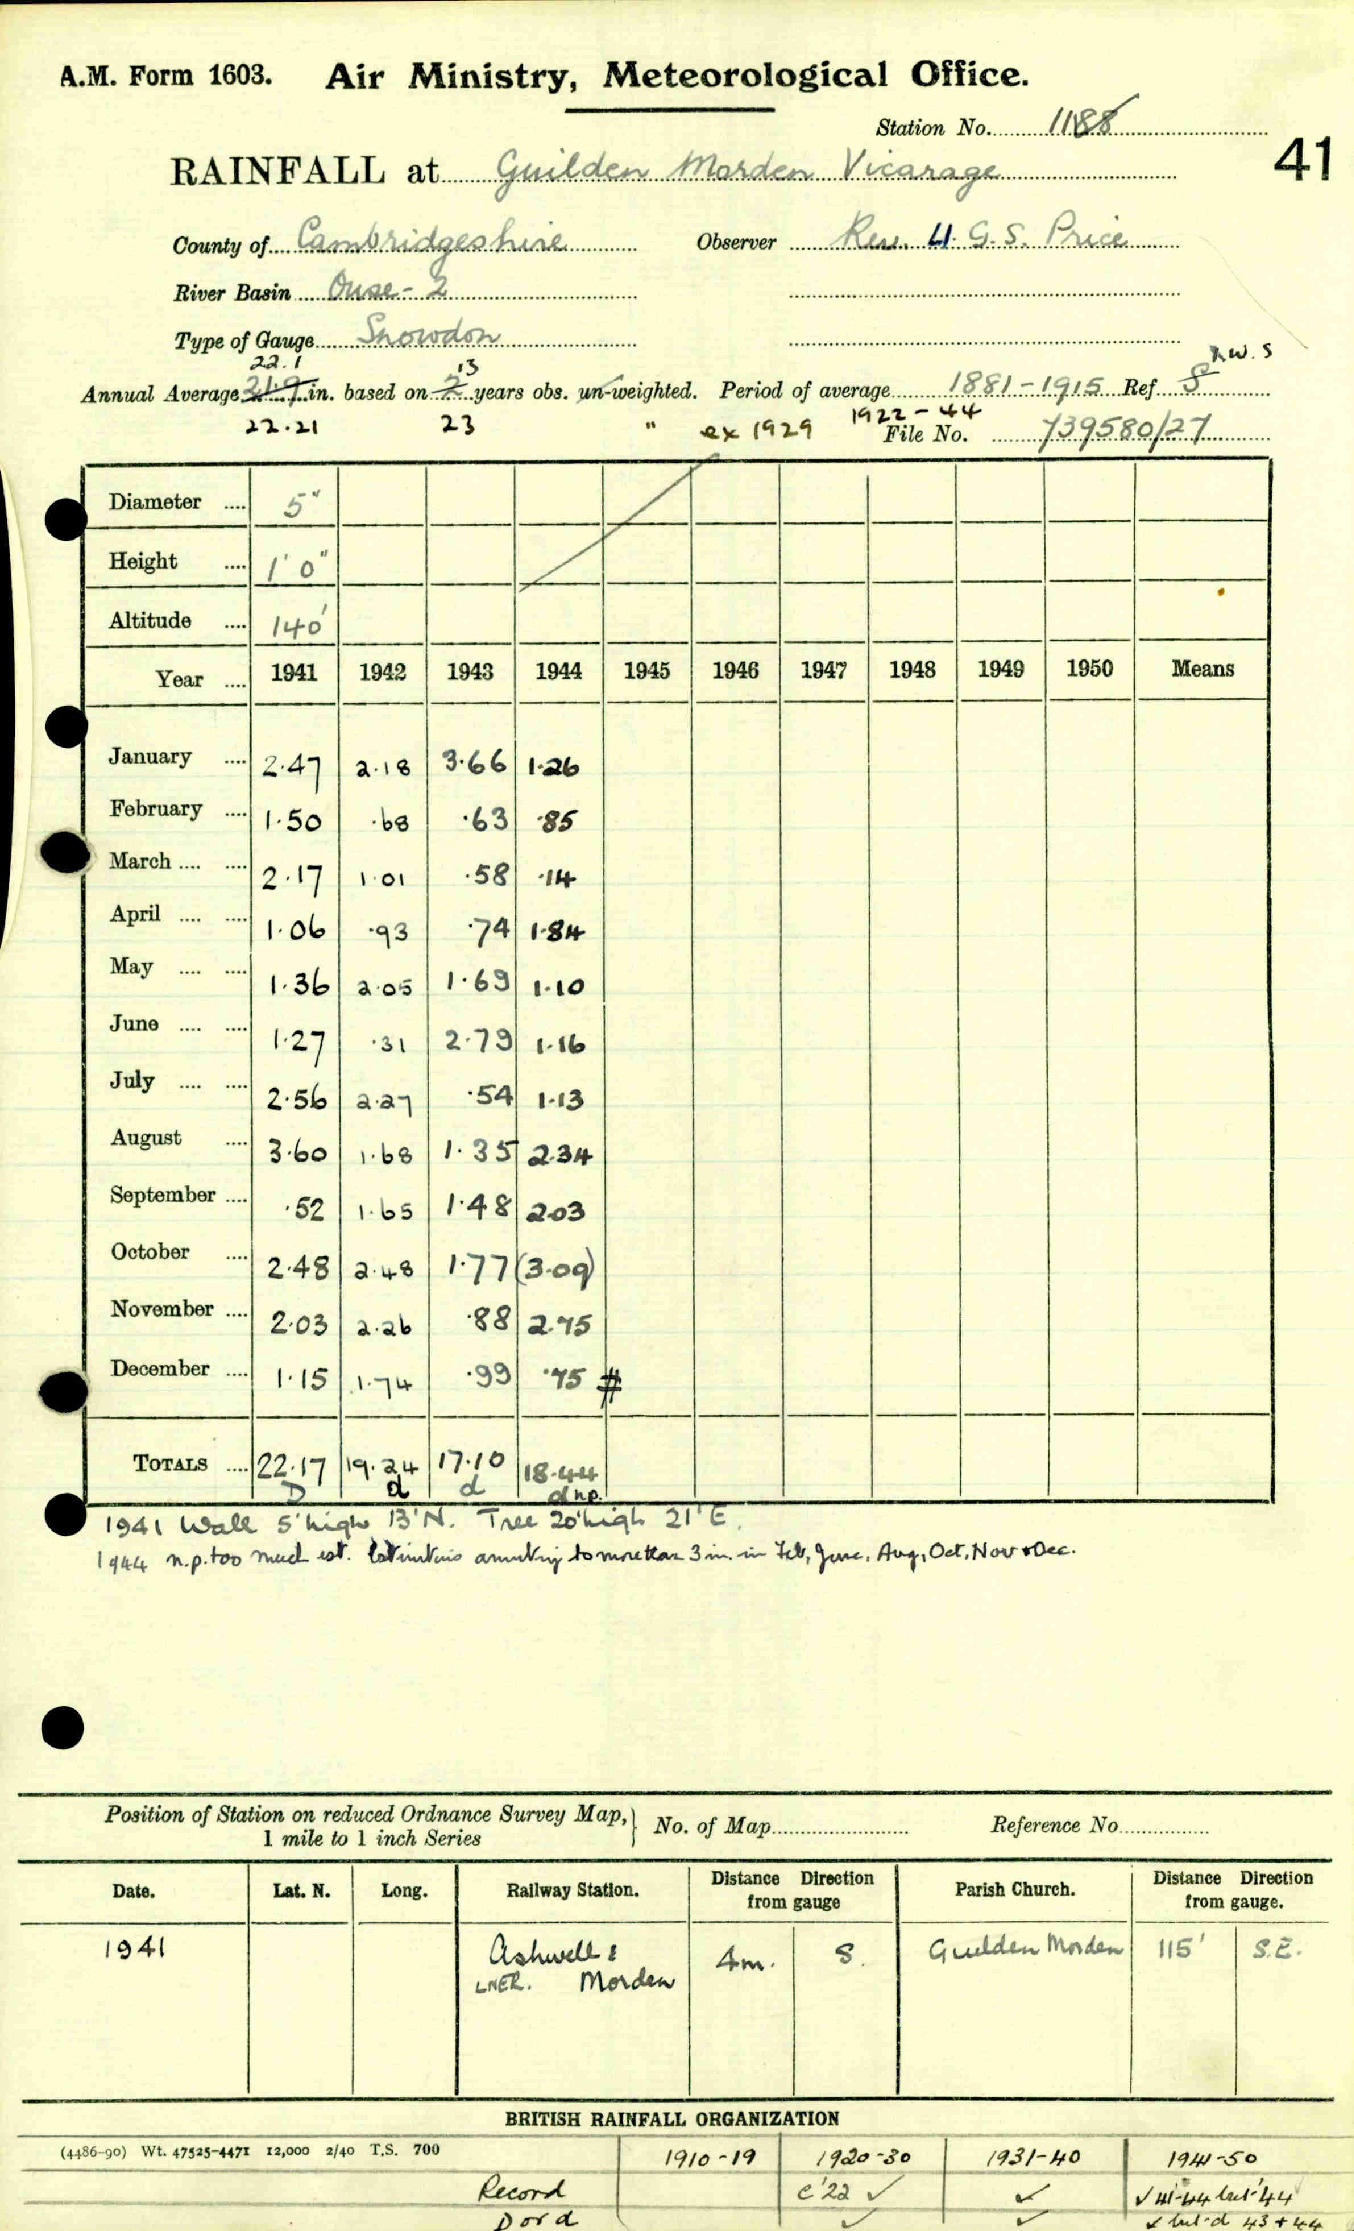 A.M. Form 1603. Air Ministry, Meteorological Office.
Station No. 1188
41
RAINFALL at Guilden Morden Vicarage
County of Cambridgeshire Observer Rev. H. G. S. Price
River Basin Ouse-2
Type of Gauge Snowdon
22.1 13 R.W.S
Annual Average 21.9 in. based on years obs. un-weighted. Period of average 1881-1915 Ref. S
22.21 23 " ex 1929 1922-44 File No. 739580/27
Diameter .... 5"
Height .... 1' 0"
Altitude .... 140'
Year .... 1941 1942 1943 1944 1945 1946 1947 1948 1949 1950 Means
January .... 2.47 2.18 3.66 1.26
February .... 1.50 .68 .63 .85
March .... .... 2.17 1.01 .58 .14
April .... .... 1.06 .93 .74 1.84
May .... .... 1.36 2.05 1.69 1.10
June .... .... 1.27 .31 2.79 1.16
July .... .... 2.56 2.27 .54 1.13
August .... 3.60 1.68 1.35 2.34
September .... .52 1.65 1.48 2.03
October .... 2.48 2.48 1.77 (3.09)
November .... 2.03 2.26 .88 2.75
December .... 1.15 1.74 .99 .75 #
TOTALS .... 22.17 19.24 17.10 18.44
D d d d n.p.
1941 Wall 5' high 13' N. Tree 20' high 21' E.
1944 n.p. too much est. Estimates amounting to more than 3 in. in Feb, June, Aug, Oct, Nov & Dec.
Position of Station on reduced Ordnance Survey Map, 1 mile to 1 inch Series } No. of Map Reference No
Date. Lat. N. Long. Railway Station. Distance Direction from gauge Parish Church. Distance Direction from gauge.
1941 Ashwell & 4m. S. Guilden Morden 115' S.E.
LNER. Morden
BRITISH RAINFALL ORGANIZATION
(4486-90) Wt. 47525-4471 12,000 2/40 T.S. 700 1910-19 1920-30 1931-40 1941-50
Record c'22 ✓ ✓ ✓ 41-44 but '44
D or d ✓ ✓ ✓ but d 43 + 44